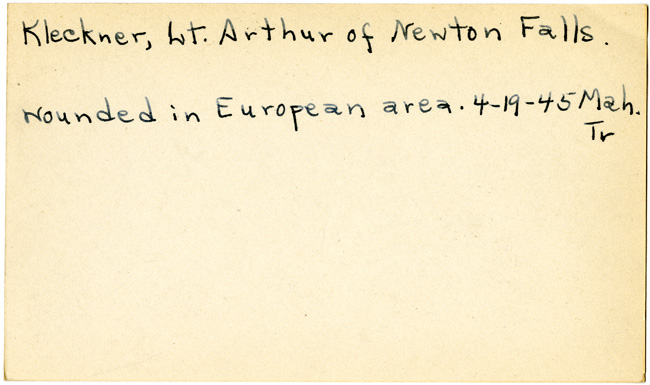 Kleckner, Lt. Arthur of Newton Falls.
Wounded in European area. 4-19-45 Mah.
Tr